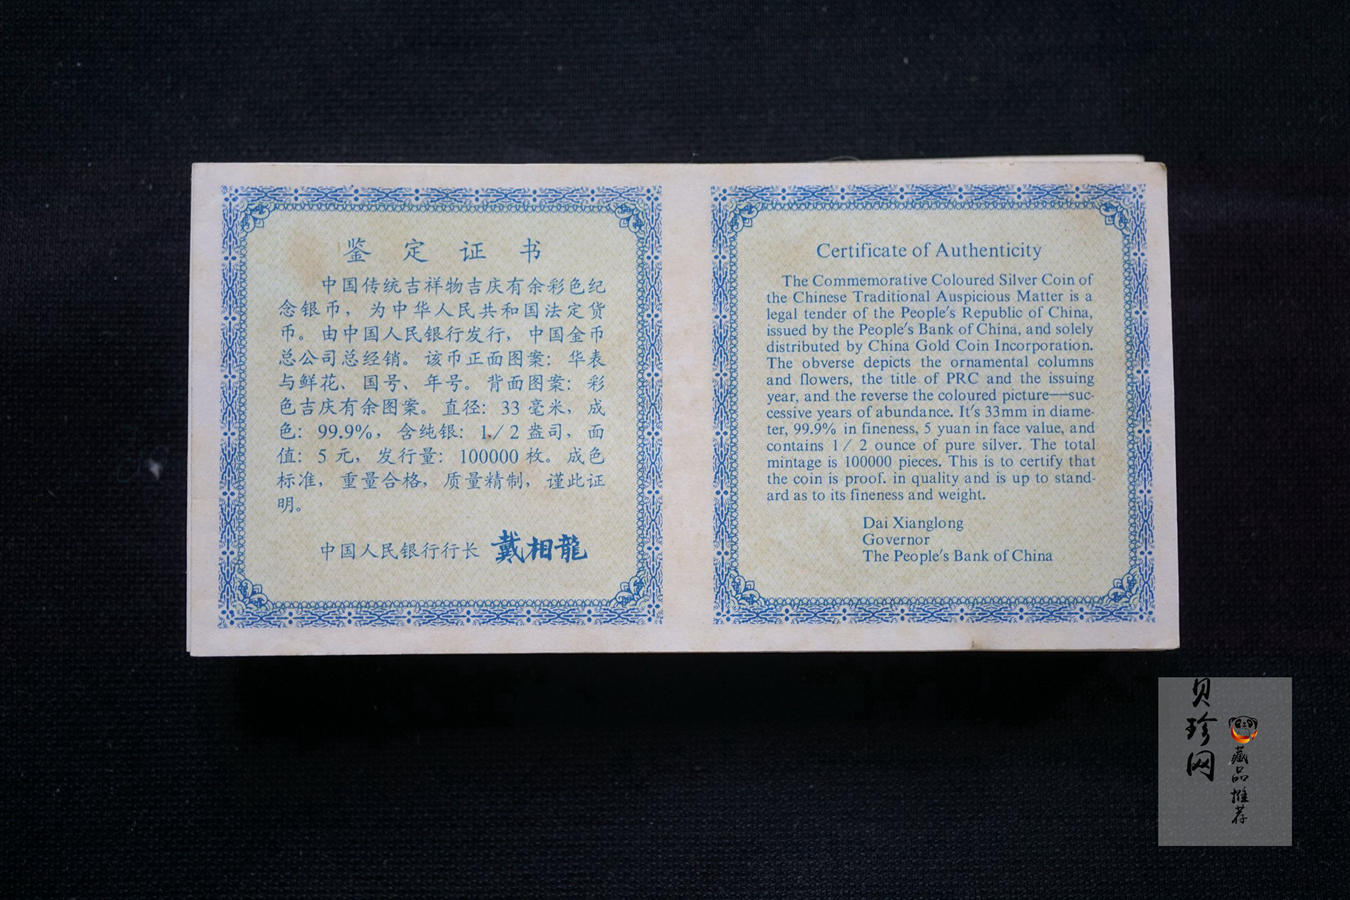 鉴定证书
中国传统吉祥物吉庆有余彩色纪
念银币，为中华人民共和国法定货
币。由中国人民银行发行，中国金币
总公司总经销。该币正面图案：华表
与鲜花、国号、年号。背面图案：彩
色吉庆有余图案。直径：33毫米，成
色：99.9%，含纯银：1/2盎司，面
值：5元，发行量：100000枚。成色
标准，重量合格，质量精制，谨此证
明。
中国人民银行行长 戴相龍
Certificate of Authenticity
The Commemorative Coloured Silver Coin of
the Chinese Traditional Auspicious Matter is a
legal tender of the People's Republic of China,
issued by the People's Bank of China, and solely
distributed by China Gold Coin Incorporation.
The obverse depicts the ornamental columns
and flowers, the title of PRC and the issuing
year, and the reverse the coloured picture——suc-
cessive years of abundance. It's 33mm in diame-
ter, 99.9% in fineness, 5 yuan in face value, and
contains 1/2 ounce of pure silver. The total
mintage is 100000 pieces. This is to certify that
the coin is proof. in quality and is up to stand-
ard as to its fineness and weight.
Dai Xianglong
Governor
The People's Bank of China
贝珍网
藏品推荐